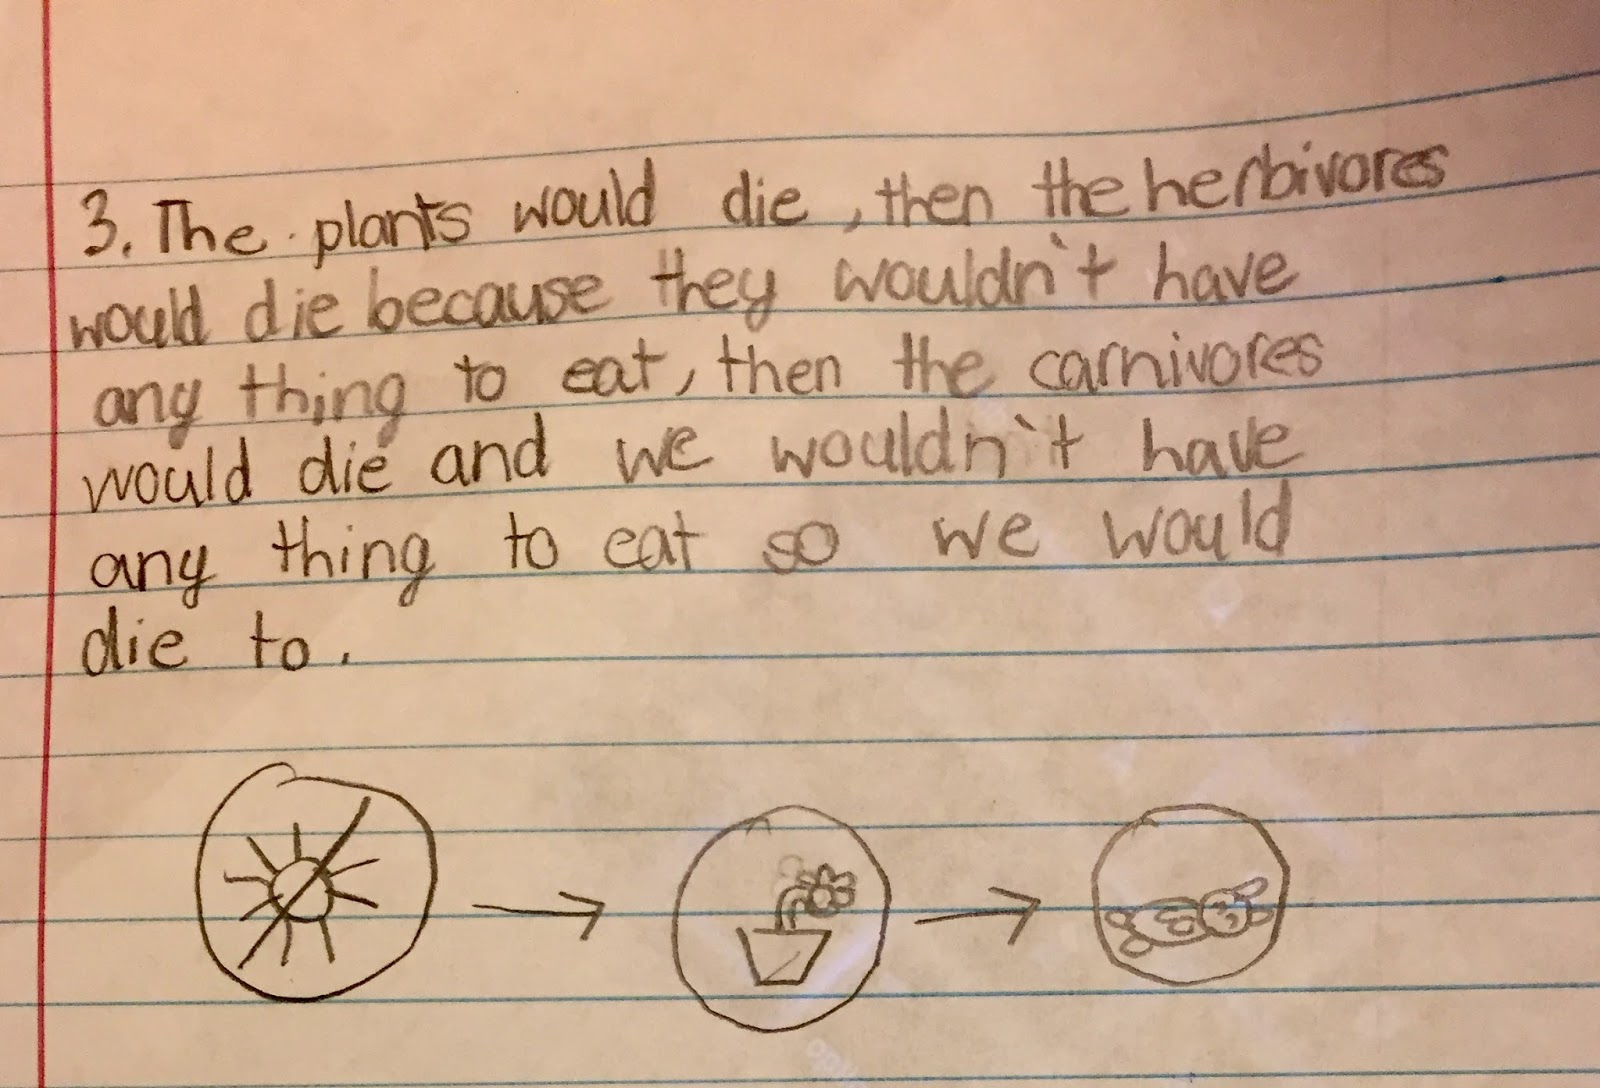 3. The plants would die, then the herbivores
would die because they wouldn't have
any thing to eat, then the carnivores
would die and we wouldn't have
any thing to eat so we would
die to.